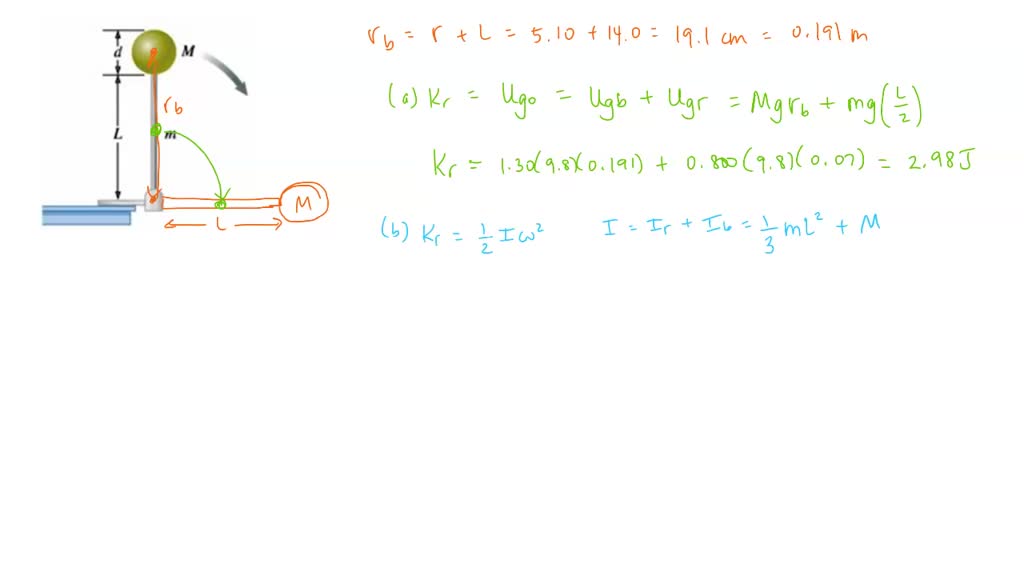 r_b = r + L = 5.10 + 14.0 = 19.1 cm = 0.191 m
d
M
r_b
L
m
M
L
(a) Kr = Ugo = Ugb + Ugr = Mgr_b + mg(L/2)
Kr = 1.30(9.8)(0.191) + 0.800(9.8)(0.07) = 2.98J
(b) Kr = 1/2 Iω² I = Ir + Ib = 1/3 mL² + M